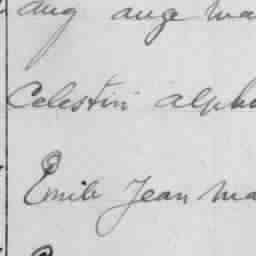 aug ange Ma
Celestin alpho
Emile Jean Ma